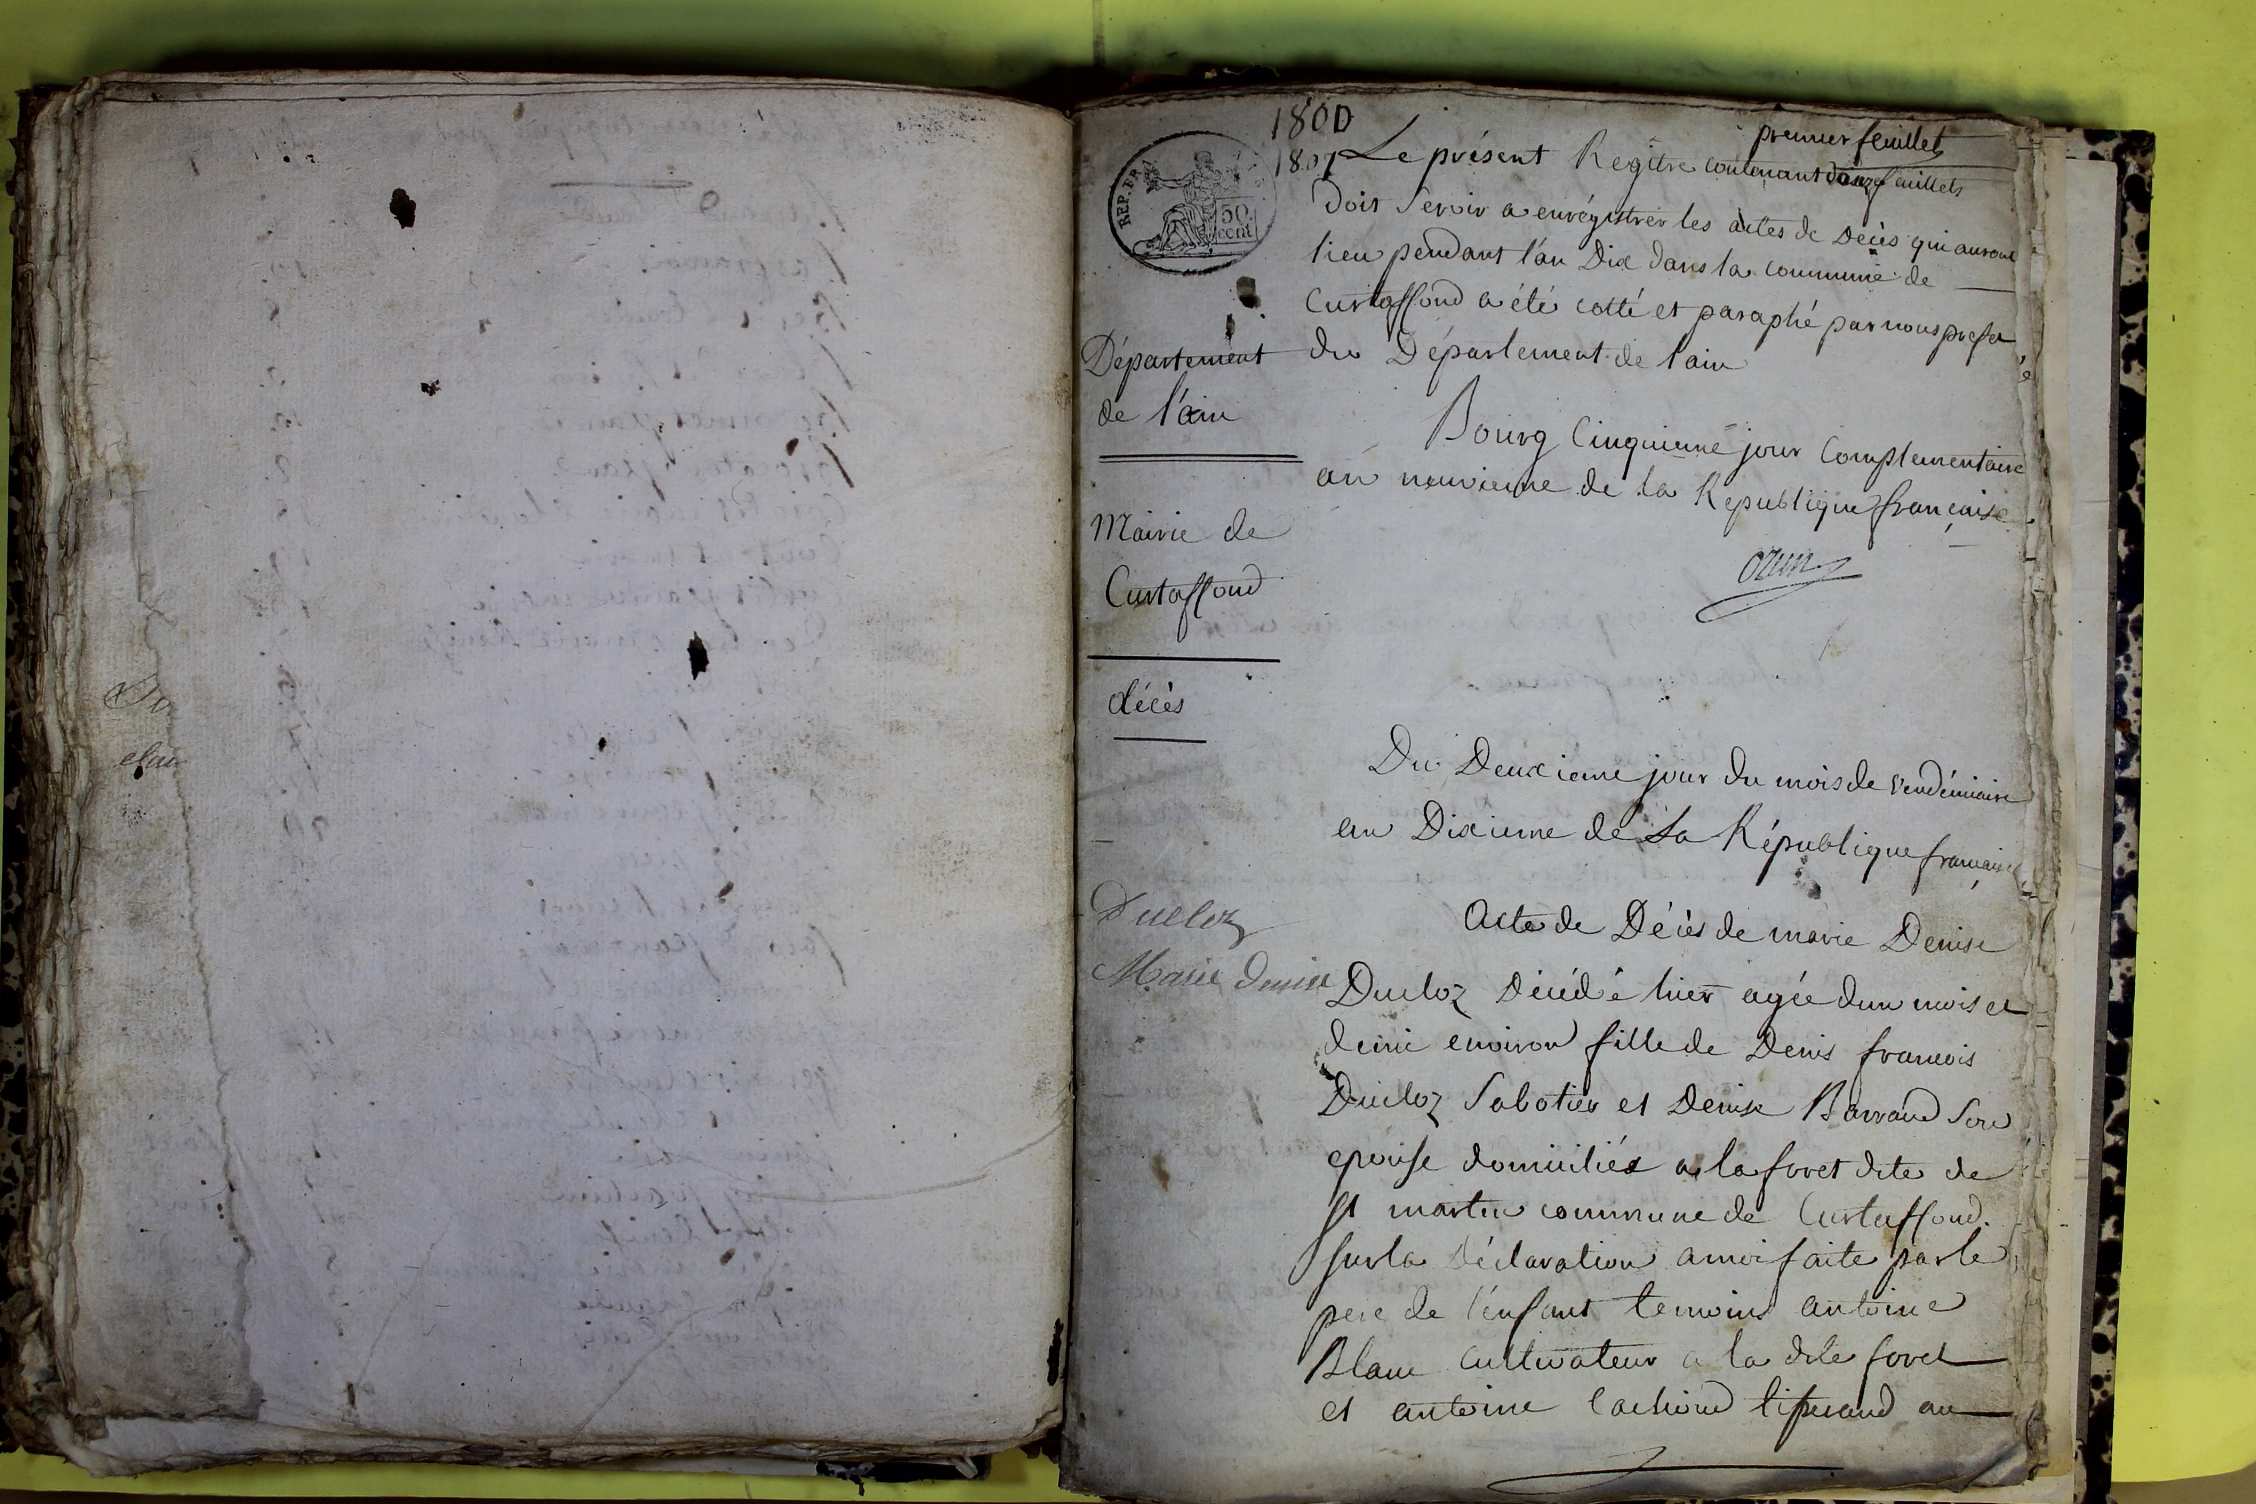 Du
clau
1800
1801
premier feuillet
REP. FRA
50 cent
Le présent Regitre contenant douze feuillets
doit Servir a enrégistrer les actes de Décès qui auront
lieu pendant l'an Dix dans la commune de
Curtaffond a été cotté et paraphé par nous prefet
du Département de l'ain
Département
de l'ain
Bourg Cinquieme jour Complementaire
an neuvieme de la Republique française.
ozun
Mairie de
Curtaffond
décès
Du Deuxieme jour du mois de vendémiaire
an Dixieme de La République francaise
Ducloz
Marie denise
Acte de Décès de marie Denise
Ducloz Décédé hier agée dun mois et
demie environ fille de Denis francois
Ducloz Sabotier et Denise Barraud Son
epouse domiciliés a la foret dite de
St martin commune de Curtaffond.
Sur la Déclaration a moi faite par le
pere de l'enfant temoins antoine
Blanc cultivateur a la dite foret
et antoine au